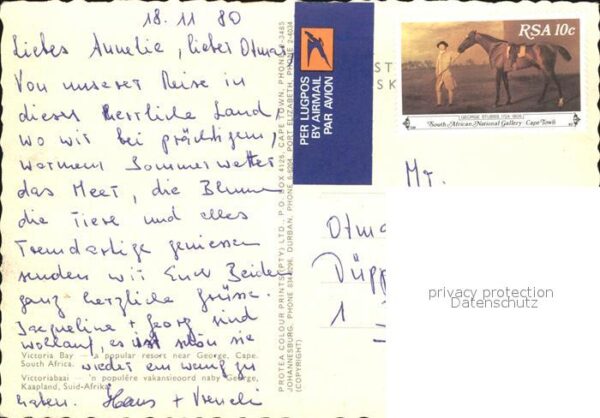 18.11 80
Liebes Annelie, lieber Otmar,
Von unserer Reise in
dieses herrliche Land
wo wir bei prächtigem,
warmem Sommerwetter
das Meer, die Blumen
die Tiere und alles
Fremdartige geniessen
senden wir Euch Beiden
ganz herzliche Grüsse.
Jacqueline + Georg sind
wohlauf, es ist schön sie
wieder ein wenig zu
haben. Hans + Vreneli
Victoria Bay — a popular resort near George, Cape.
South Africa.
Victoriabaai — 'n populêre vakansieoord naby George,
Kaapland, Suid-Afrika
PROTEA COLOUR PRINTS (PTY) LTD. P.O. BOX 4125, CAPE TOWN, PHONE
JOHANNESBURG, PHONE DURBAN, PHONE PORT ELIZABETH, PHONE 2-4034
(COPYRIGHT)
PER LUGPOS
BY AIRMAIL
PAR AVION
ST
SK
RSA 10c
GEORGE STUBBS
South African National Gallery Cape Town
Mr.
Otma
Düpp
1
privacy protection
Datenschutz